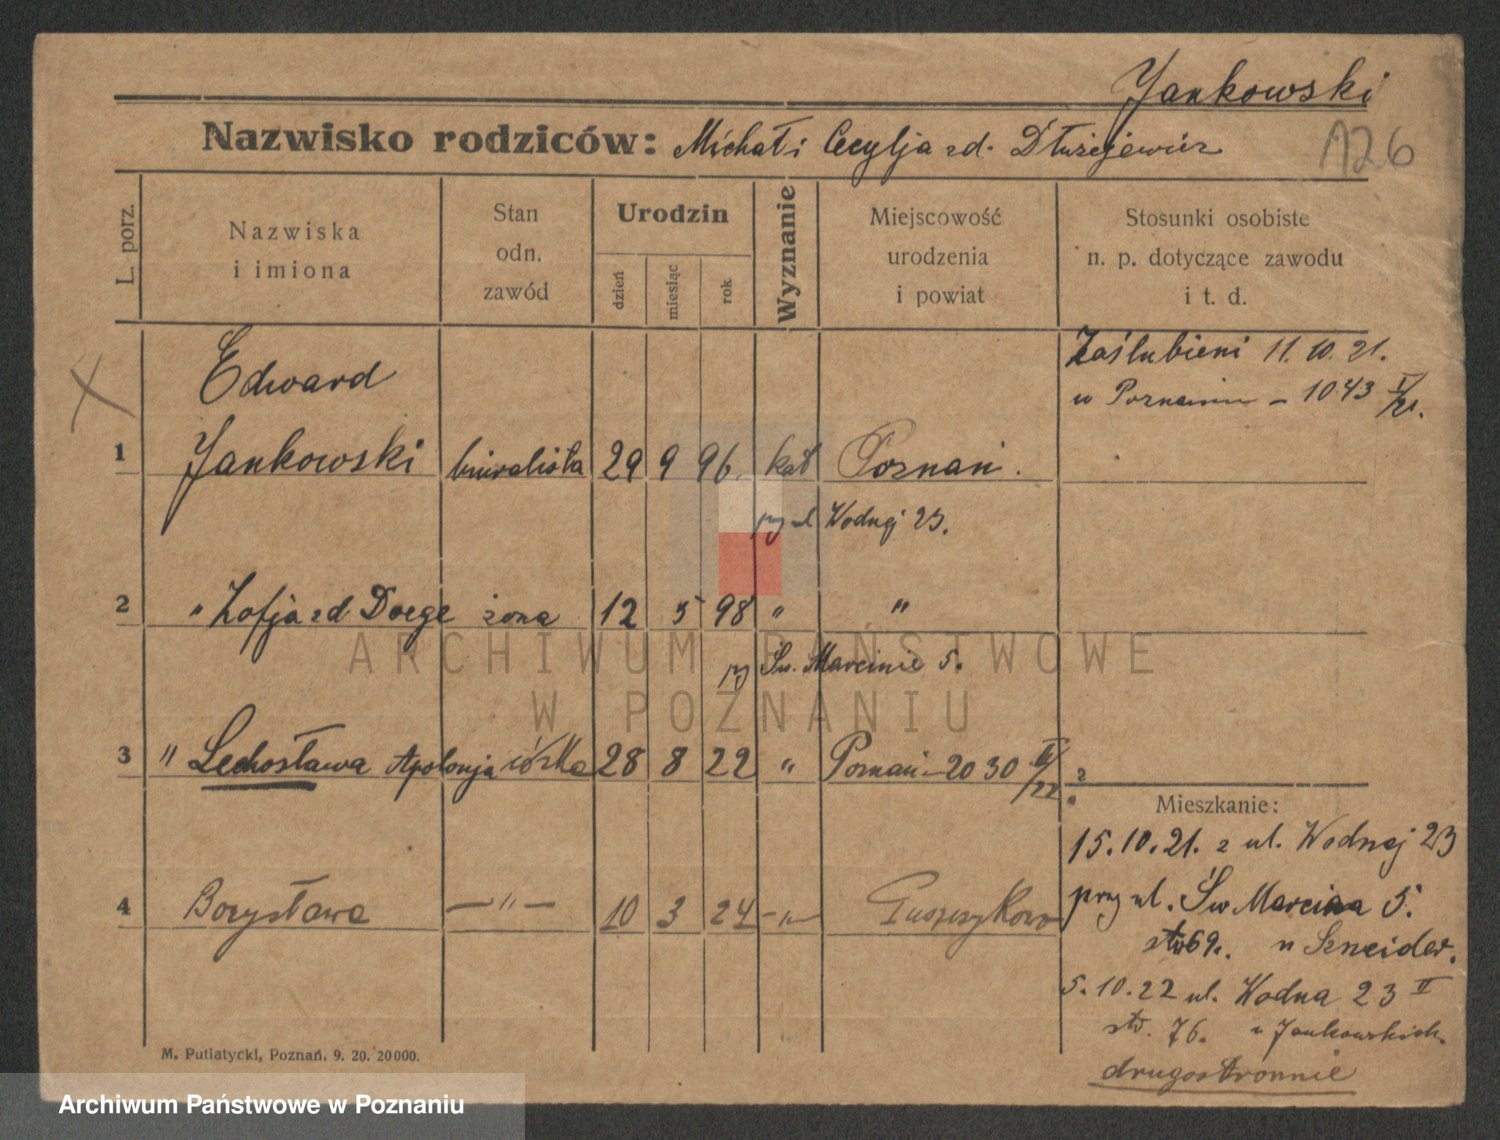 Jankowski
Nazwisko rodziców: Michał i Cecylja zd. Dłużejewicz
126
L. porz.
Nazwiska i imiona
Stan odn. zawód
Urodzin
dzień
miesiąc
rok
Wyznanie
Miejscowość urodzenia i powiat
Stosunki osobiste n. p. dotyczące zawodu i t. d.
Edward
Zaślubieni 11. 10. 21.
w Poznaniu - 1043 I/21.
1 Jankowski biuralista 29 9 96. kat Poznań.
przy ul Wodnej 23.
2 " Zofja zd Doege żona 12 5 98 " "
przy Św. Marcinie 5.
3 " Lechosława Apolonja córka 28 8 22 " Poznań - 2030 /22
Mieszkanie:
15. 10. 21. z ul. Wodnej 23
przy ul. Św Marcina 5.
69. u Szneider.
5. 10. 22 ul. Wodna 23 II
76. u Jankowskich.
drugostronnie
4 Borysława -"- 10 3 24 -"- Puszczykowo
M. Putiatycki, Poznań. 9. 20. 20000.
ARCHIWUM PAŃSTWOWE
W POZNANIU
Archiwum Państwowe w Poznaniu